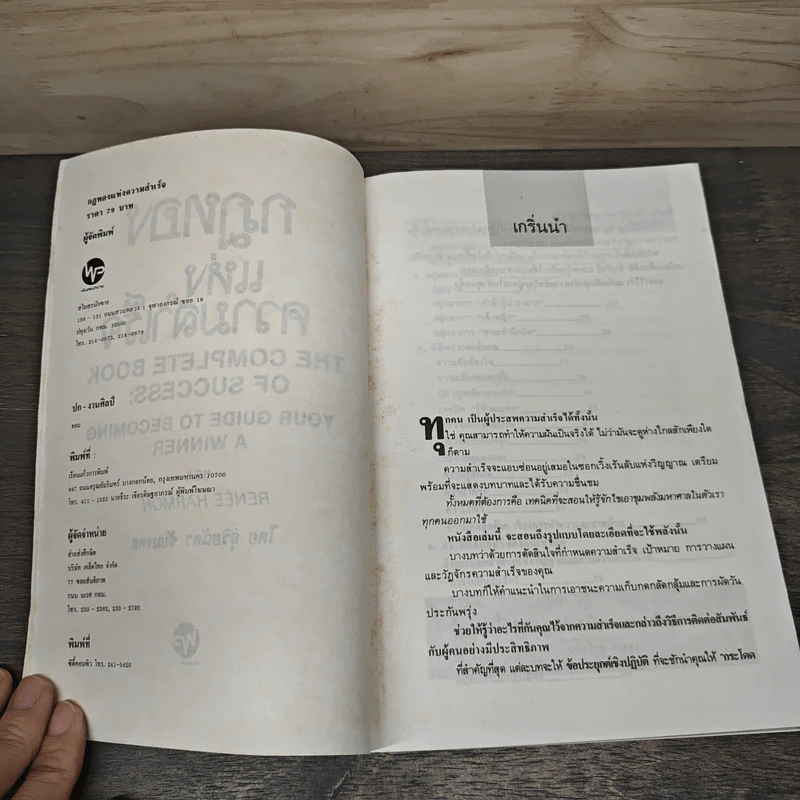 กฎทองแห่งความสำเร็จ
ราคา 79 บาท
ผู้จัดพิมพ์
WP
สโมสรนักขาย
129 - 131 ถนนสวนหลวง 1 จุฬาลงกรณ์ ซอย 16
ปทุมวัน กทม. 10500
โทร. 214-0573, 214-0676
ปก - งานศิลป์
พิมพ์ที่ :
เรือนแก้วการพิมพ์
947 ถนนอรุณอัมรินทร์ บางกอกน้อย, กรุงเทพมหานคร 10700
โทร. 411 - 1523 นายธีระ เจียรดิษฐอาภรณ์ ผู้พิมพ์โฆษณา
ผู้จัดจำหน่าย
สายส่งศึกษิต
บริษัท เคล็ดไทย จำกัด
77 ซอยสันติภาพ
ถนน นเรศ กทม.
โทร. 233 - 2382, 233 - 2792
พิมพ์ที่
ซิตี้คอมพิว โทร. 241-5420
เกริ่นนำ
ทุกคน เป็นผู้ประสพความสำเร็จได้ทั้งนั้น
ใช่ คุณสามารถทำให้ความฝันเป็นจริงได้ ไม่ว่ามันจะดูห่างไกลสักเพียงใด
ก็ตาม
ความสำเร็จจะแอบซ่อนอยู่เสมอในซอกเวิ้งเร้นลับแห่งวิญญาณ เตรียม
พร้อมที่จะแสดงบทบาทและได้รับความชื่นชม
ทั้งหมดที่ต้องการคือ เทคนิคที่จะสอนให้รู้จักไขเอาขุมพลังมหาศาลในตัวเรา
ทุกคนออกมาใช้
หนังสือเล่มนี้ จะสอนถึงรูปแบบโดยละเอียดที่จะใช้พลังนั้น
บางบทว่าด้วยการตัดสินใจที่กำหนดความสำเร็จ เป้าหมาย การวางแผน
และวัฏจักรความสำเร็จของคุณ
บางบทก็ให้คำแนะนำในการเอาชนะความเก็บกดกลัดกลุ้มและการผัดวัน
ประกันพรุ่ง
ช่วยให้รู้ว่าอะไรที่กันคุณไว้จากความสำเร็จและกล่าวถึงวิธีการติดต่อสัมพันธ์
กับผู้คนอย่างมีประสิทธิภาพ
ที่สำคัญที่สุด แต่ละบทจะให้ ข้อประยุกต์เชิงปฏิบัติ ที่จะชักนำคุณให้ "กระโดด